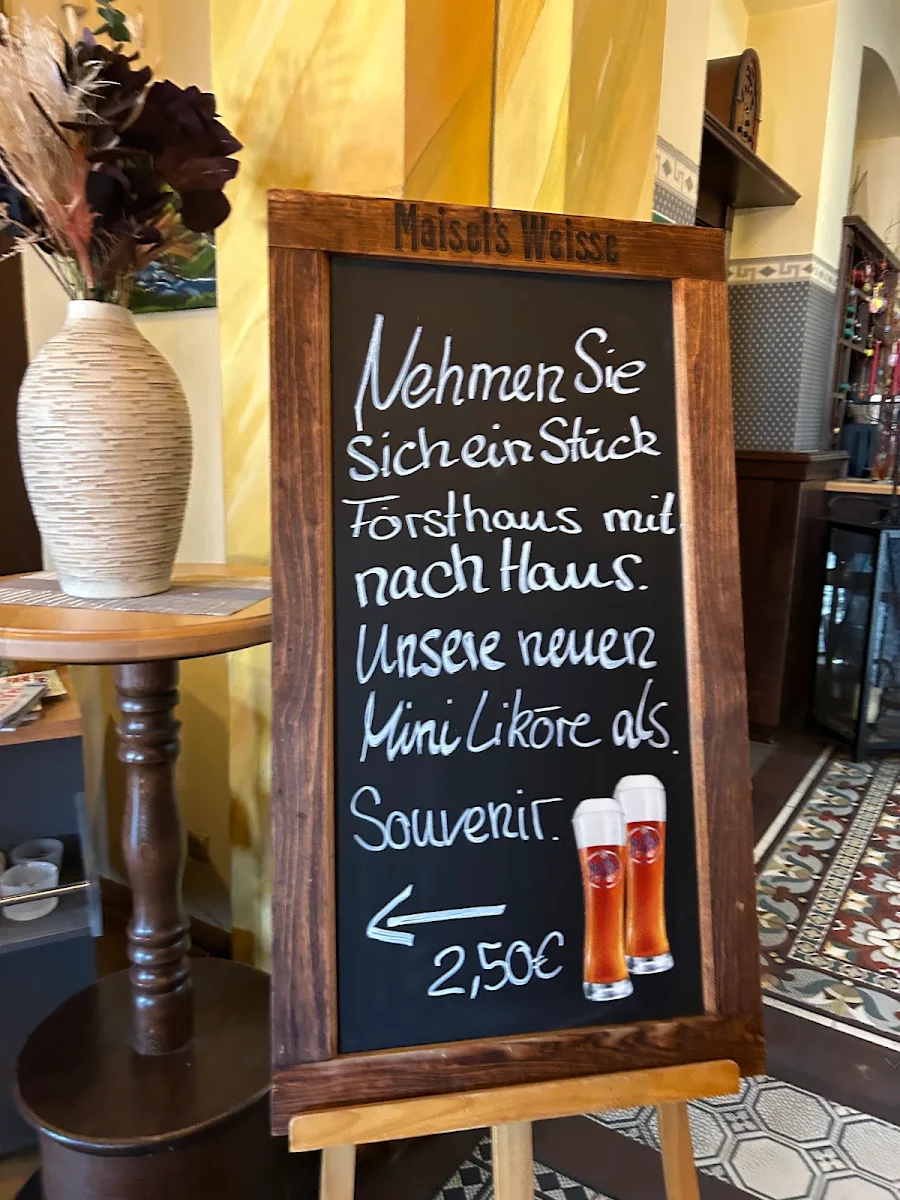 Maisel's Weisse
Nehmen Sie
sich ein Stück
Forsthaus mit
nach Haus.
Unsere neuen
Mini Liköre als
Souvenir.
2,50€